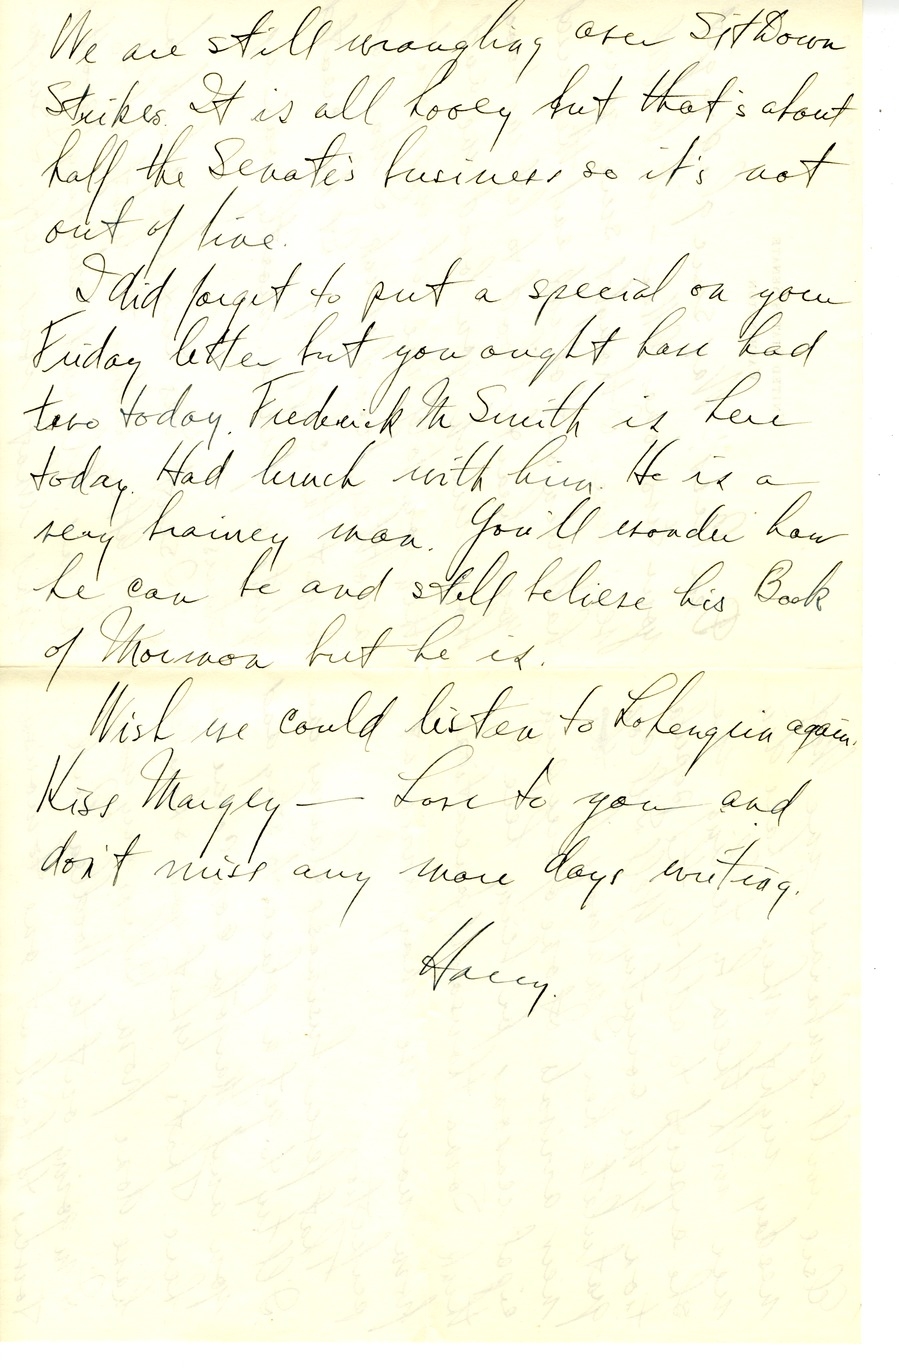 We are still wrangling over SitDown
Strikes. It is all hooey but that's about
half the Senate's business so it's not
out of line.
I did forget to put a special on your
Friday letter but you ought have had
two today. Frederick M Smith is here
today. Had lunch with him. He is a
very brainey man. You'll wonder how
he can be and still believe his Book
of Mormon but he is.
Wish we could listen to Lohengrin again.
Kiss Margey — Love to you and
don't miss any more days writing.
Harry.